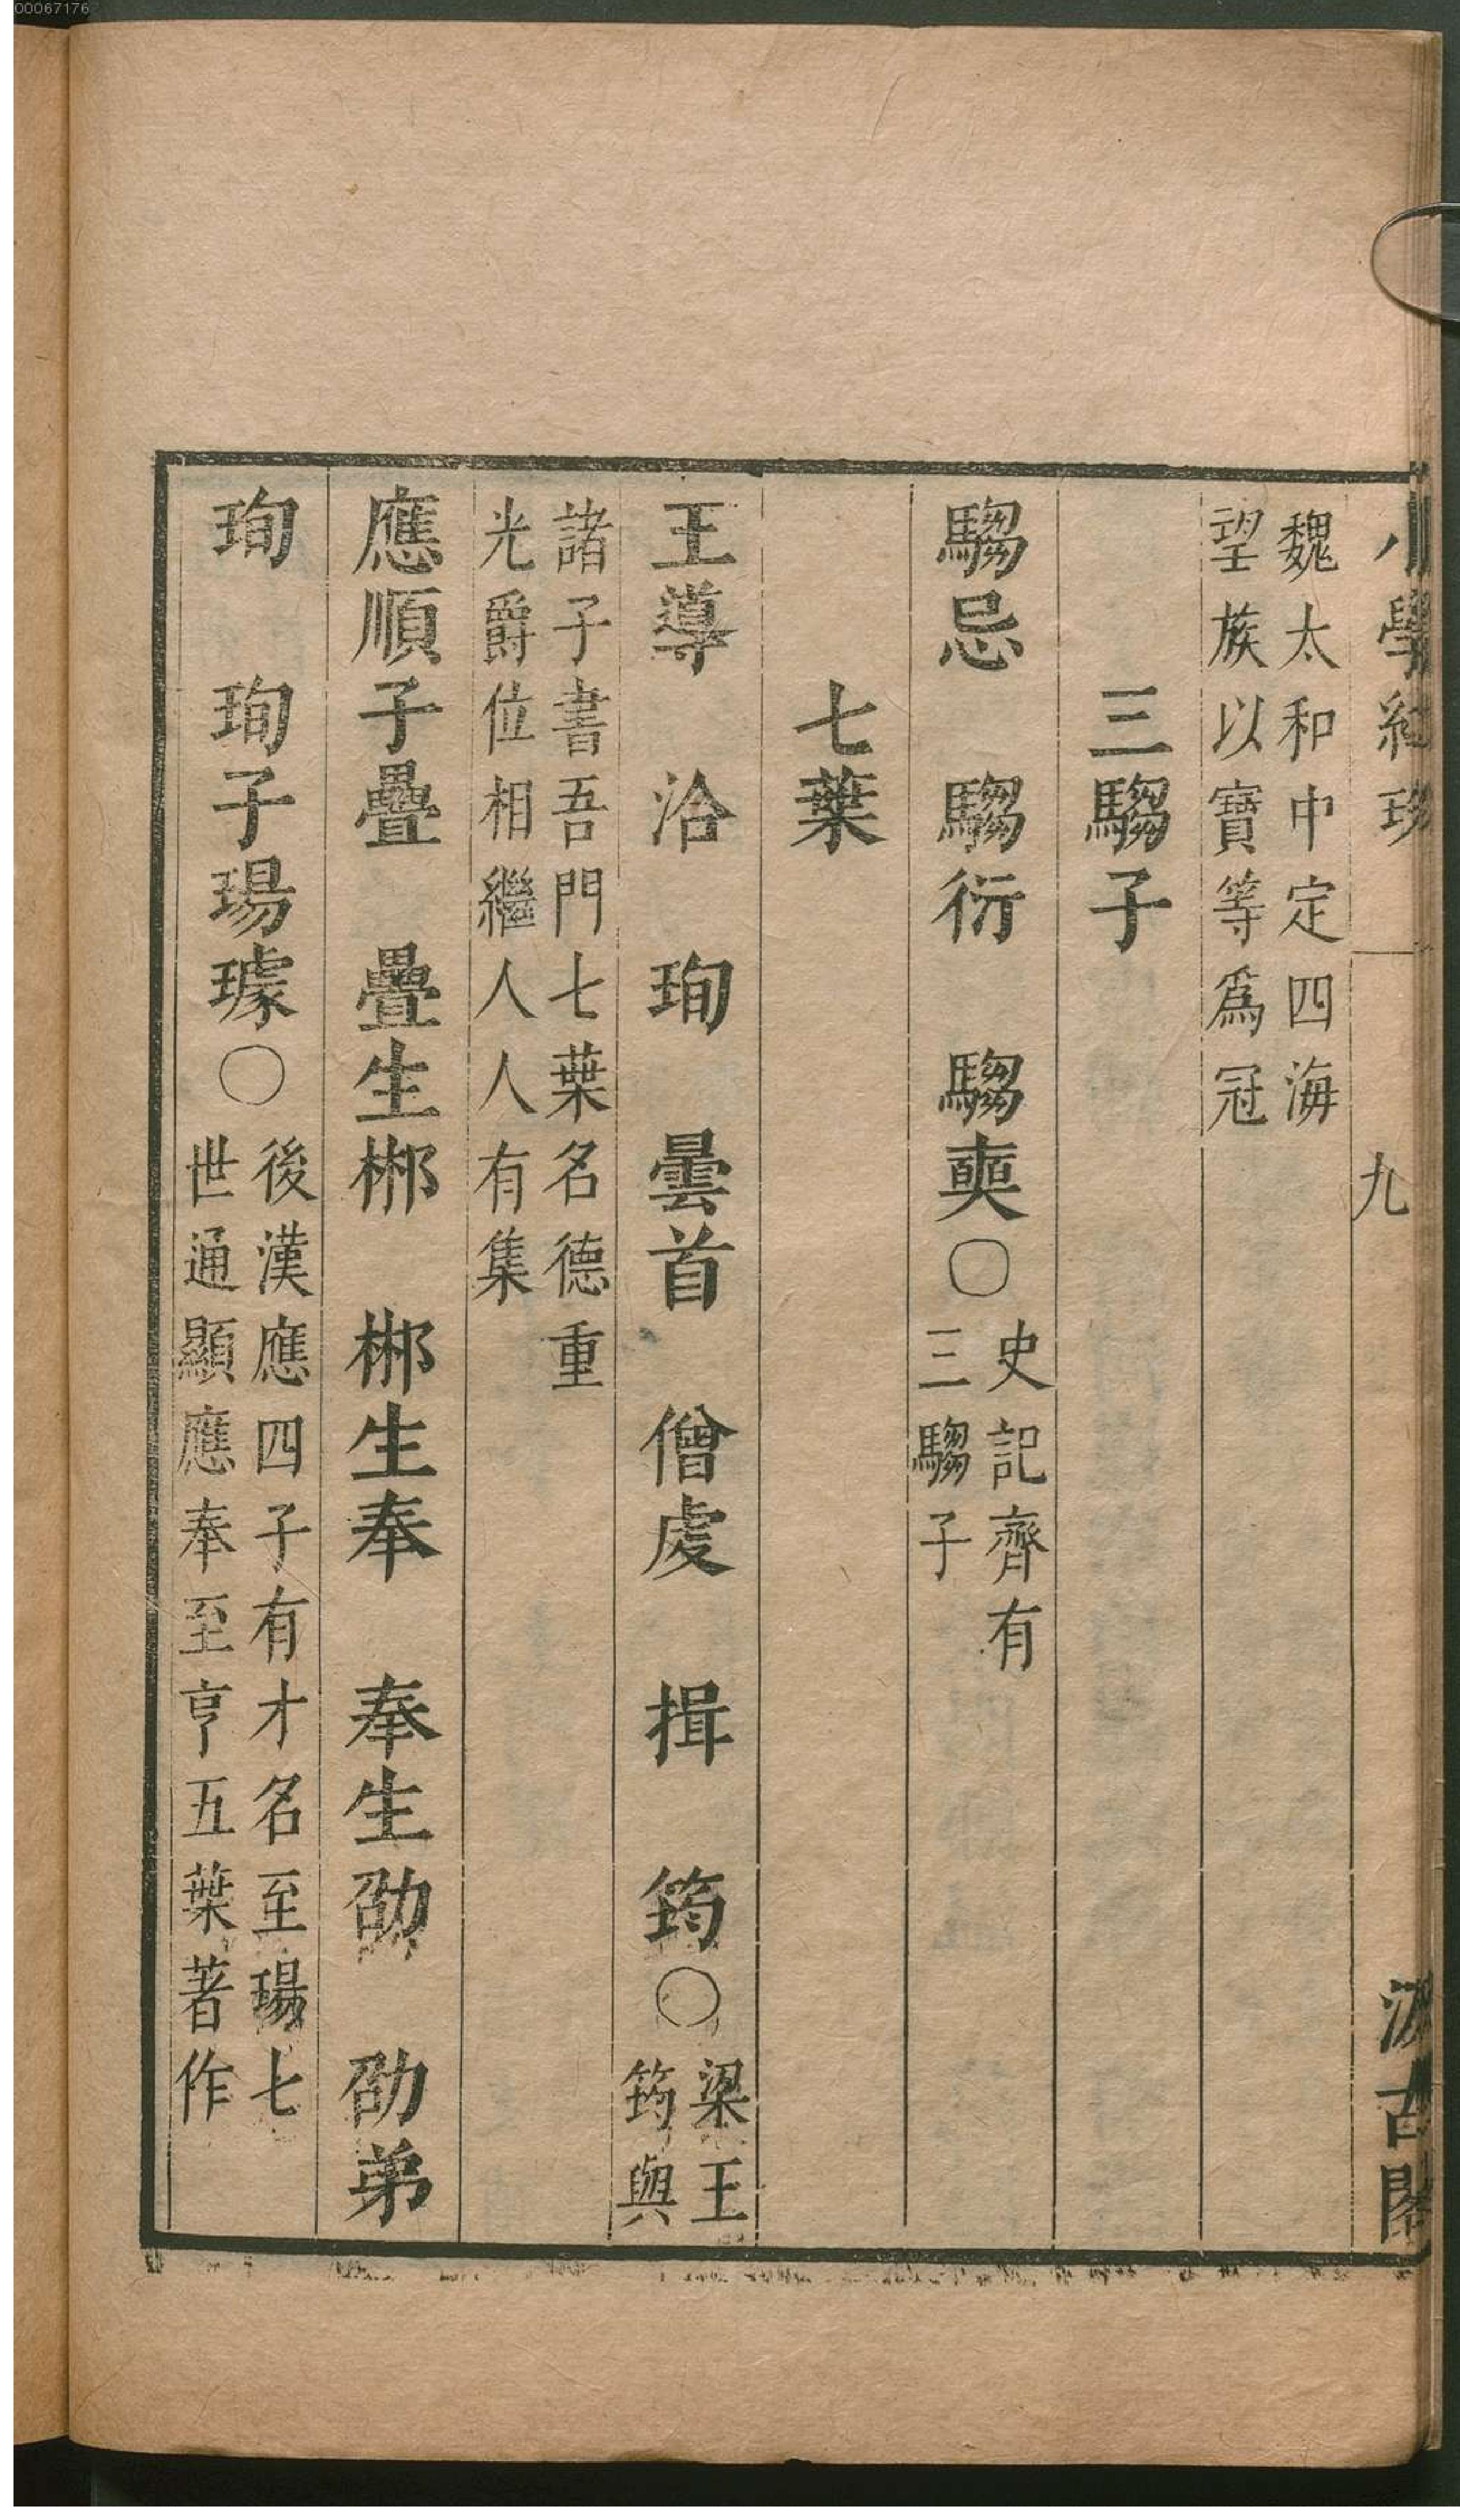 00067176
小學紺珠
九
汲古閣
魏太和中定四海
望族以寶等爲冠
三騶子
騶忌 騶衍 騶奭○史記齊有
三騶子
七葉
王導 洽 珣 曇首 僧虔 揖 筠○梁王
筠與
諸子書吾門七葉名德重
光爵位相繼人人有集
應順子疊 疊生郴 郴生奉 奉生劭 劭弟
珣 珣子瑒璩○後漢應四子有才名至瑒七
世通顯應奉至亨五葉著作